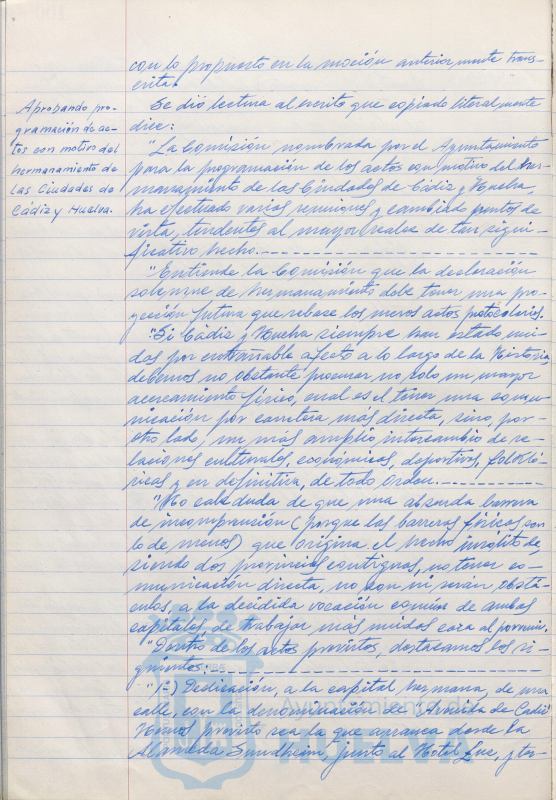 con lo propuesto en la moción anteriormente trans-
crita.
Aprobando pro-
gramación de ac-
tos con motivo del
hermanamiento de
las Ciudades de
Cádiz y Huelva.
Se dió lectura al escrito que copiado literalmente
dice:
"La Comisión nombrada por el Ayuntamiento
para la programación de los actos con motivo del her-
manamiento de las Ciudades de Cádiz y Huelva,
ha efectuado varias reuniones y cambiado puntos de
vista, tendentes al mayor realce de tan signi-
ficativo hecho.
"Entiende la Comisión que la declaración
solemne de hermanamiento debe tener una pro-
yección futura que rebase los meros actos protocolarios.
"Si Cádiz y Huelva siempre han estado uni-
das por entrañable afecto a lo largo de la Historia,
debemos no obstante procurar no solo un mayor
acercamiento físico, cual es el tener una comu-
nicación por carretera más directa, sino, por
otro lado, un más amplio intercambio de re-
laciones culturales, económicas, deportivas, folkló-
ricas y en definitiva, de todo orden.
"No cabe duda de que una absurda barrera
de incomprensión (porque las barreras físicas son
lo de menos) que origina el hecho insólito de,
siendo dos provincias contiguas, no tener co-
municación directa, no son ni serán obstá-
culos, a la decidida vocación común de ambas
capitales de trabajar más unidas cara al porvenir.
"Dentro de los actos previstos, destacamos los si-
guientes:
Dedicación, a la capital hermana, de una
calle, con la denominación de "Avenida de Cádiz"
Hemos previsto sea la que arranca desde la
Alameda Sundheim, junto al Hotel Luz, y ter-
Ayuntamiento de
HUELVA